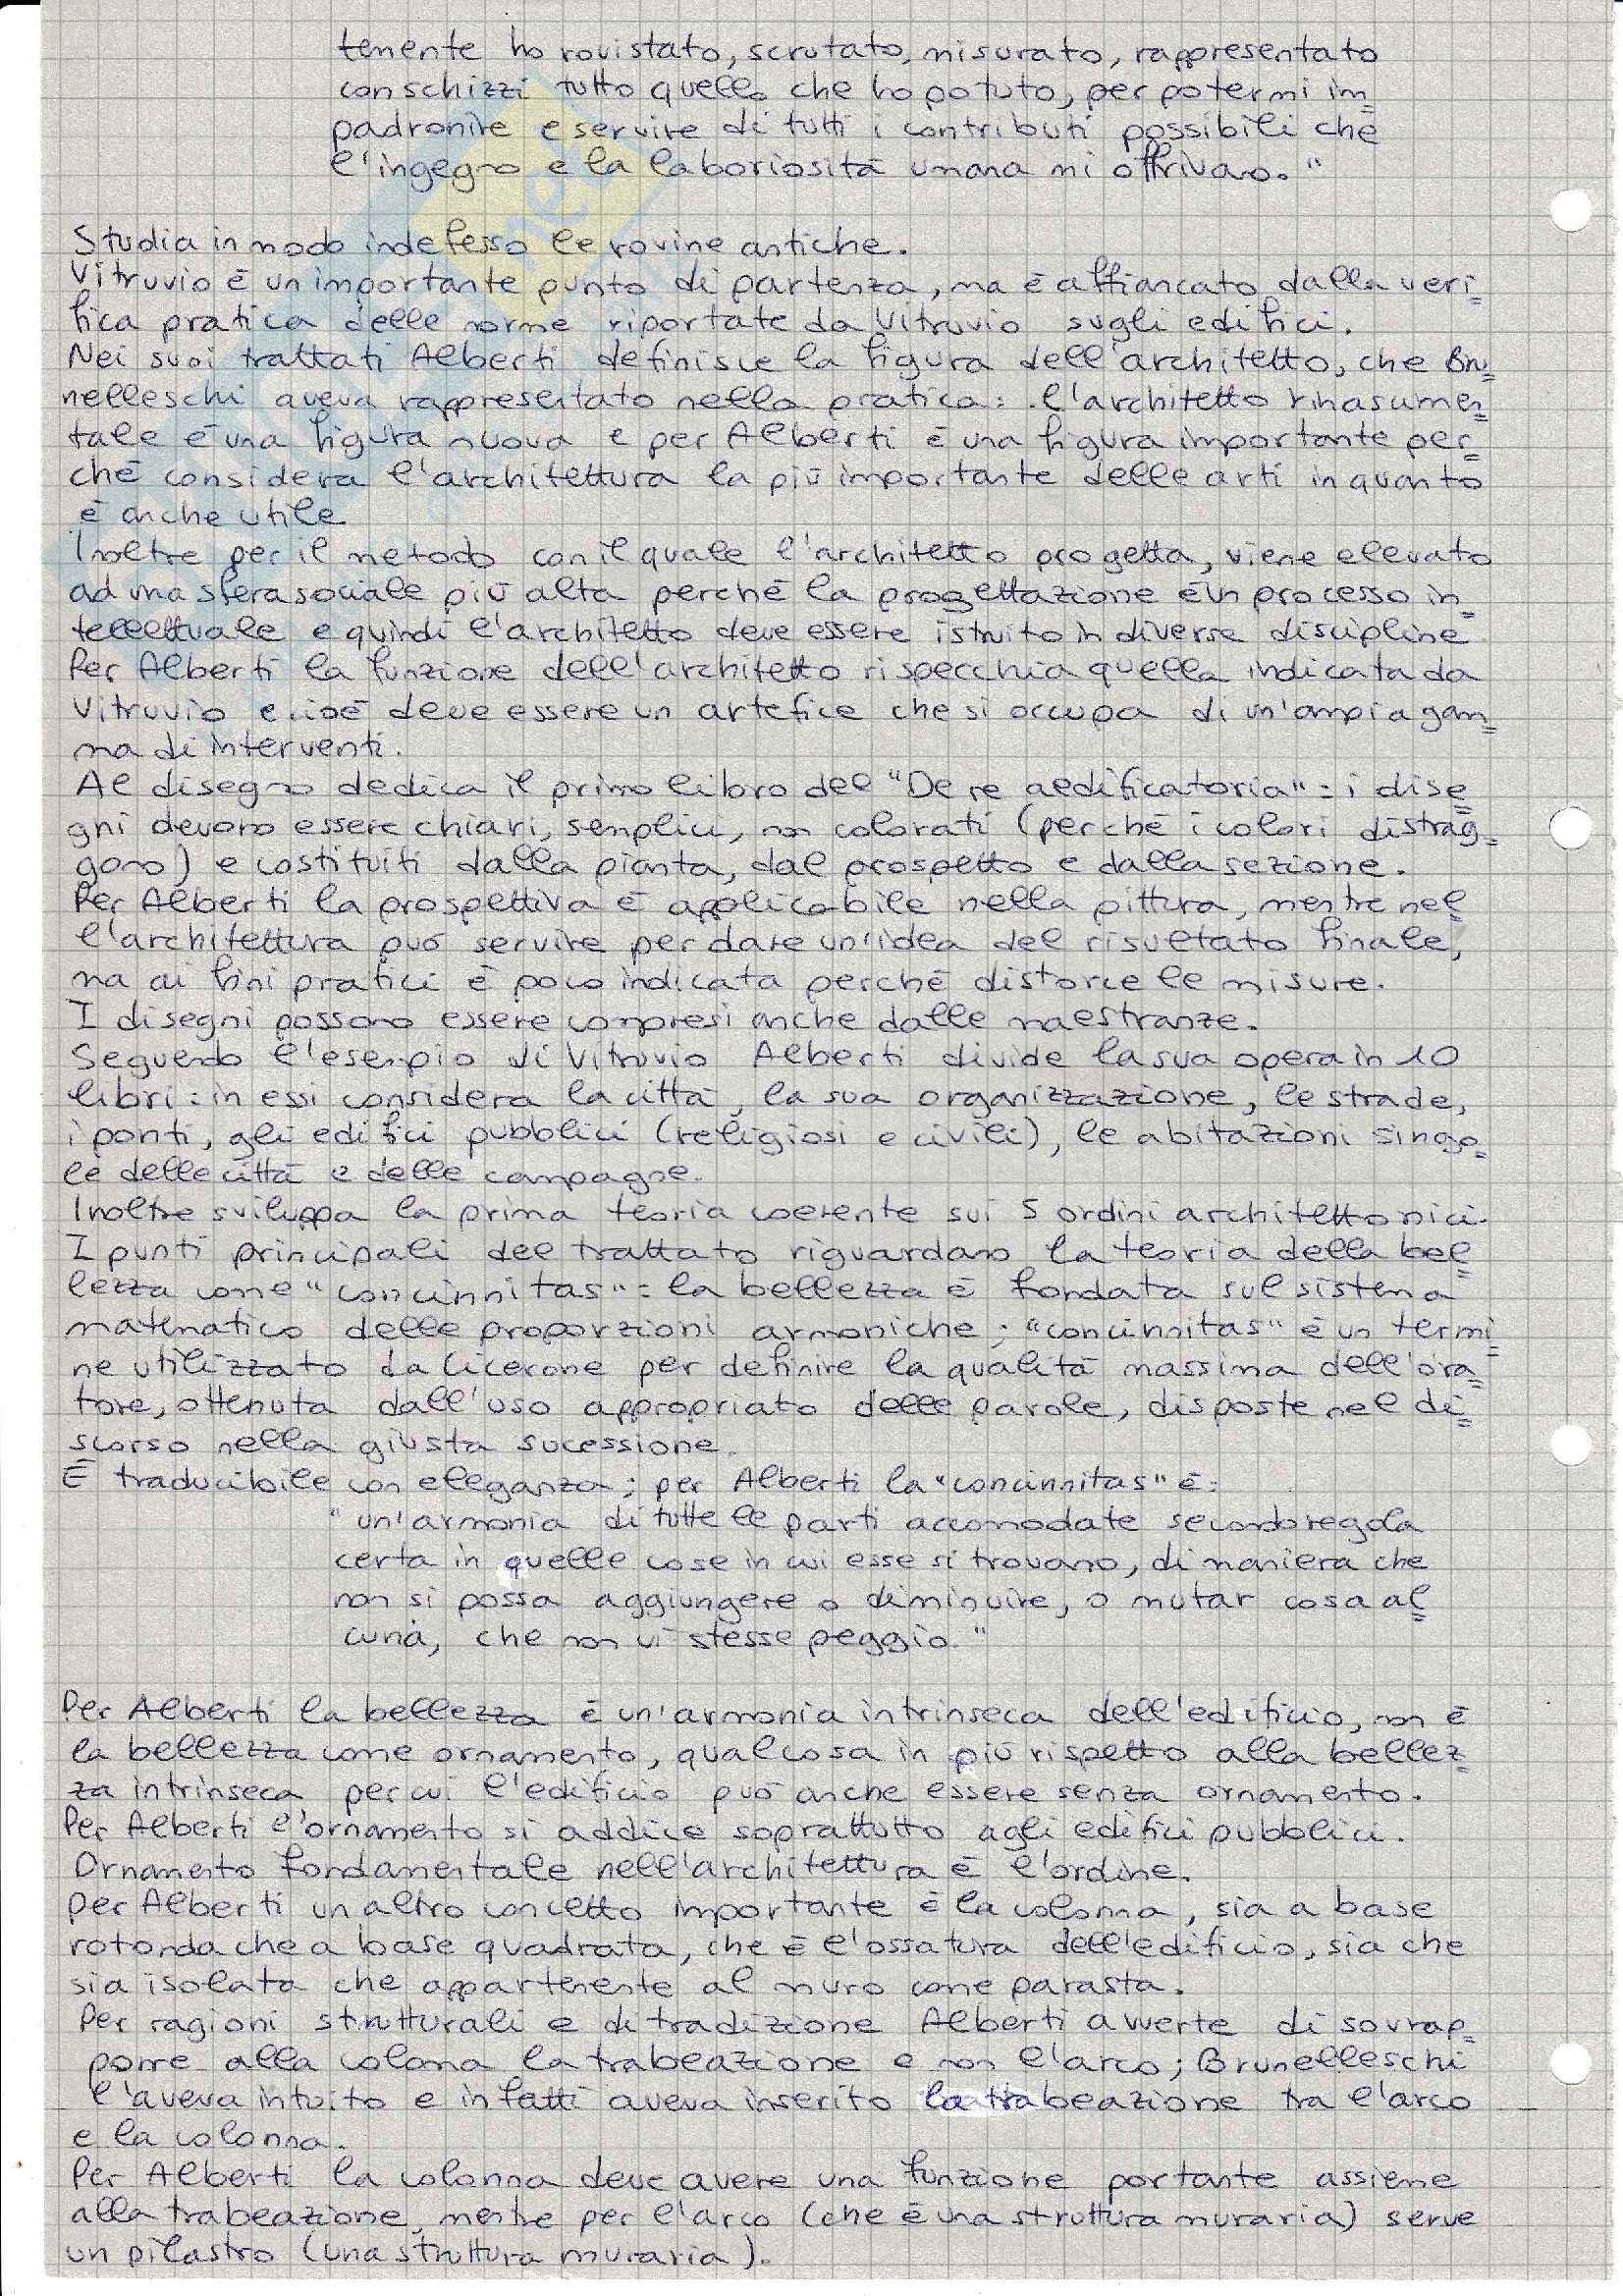 temente ho rovistato, scrutato, misurato, rappresentato
con schizzi tutto quello che ho potuto, per potermi im=
padronire e servire di tutti i contributi possibili che
l'ingegno e la laboriosità umana mi offrivano."
Studia in modo indefesso le rovine antiche.
Vitruvio è un importante punto di partenza, ma è affiancato dalla veri=
fica pratica delle norme riportate da Vitruvio sugli edifici.
Nei suoi trattati Alberti definisce la figura dell'architetto, che Bru=
nelleschi aveva rappresentato nella pratica: l'architetto rinascimen=
tale è una figura nuova e per Alberti è una figura importante per=
ché considera l'architettura la più importante delle arti in quanto
è anche utile
Inoltre per il metodo con il quale l'architetto progetta, viene elevato
ad una sfera sociale più alta perché la progettazione è un processo in=
tellettuale e quindi l'architetto deve essere istruito in diverse discipline
Per Alberti la funzione dell'architetto rispecchia quella indicata da
Vitruvio e cioè deve essere un artefice che si occupa di un'ampia gam=
ma di interventi.
Al disegno dedica il primo libro del "De re aedificatoria": i dise=
gni devono essere chiari, semplici, non colorati (perché i colori distrag=
gono) e costituiti dalla pianta, dal prospetto e dalla sezione.
Per Alberti la prospettiva è applicabile nella pittura, mentre nel=
l'architettura può servire per dare un'idea del risultato finale,
ma ai fini pratici è poco indicata perché distorce le misure.
I disegni possono essere compresi anche dalle maestranze.
Seguendo l'esempio di Vitruvio Alberti divide la sua opera in 10
libri: in essi considera la città, la sua organizzazione, le strade,
i ponti, gli edifici pubblici (religiosi e civili), le abitazioni singo=
le delle città e delle campagne.
Inoltre sviluppa la prima teoria coerente sui 5 ordini architettonici.
I punti principali del trattato riguardano la teoria della bel=
lezza come "concinnitas": la bellezza è fondata sul sistema
matematico delle proporzioni armoniche; "concinnitas" è un termi=
ne utilizzato da Cicerone per definire la qualità massima dell'ora=
tore, ottenuta dall'uso appropriato delle parole, disposte nel di=
scorso nella giusta sucessione.
È traducibile con eleganza; per Alberti la "concinnitas" è:
"un'armonia di tutte le parti accomodate secondo regola
certa in quelle cose in cui esse si trovano, di maniera che
non si possa aggiungere o diminuire, o mutar cosa al=
cuna, che non vi stesse peggio."
Per Alberti la bellezza è un'armonia intrinseca dell'edificio, non è
la bellezza come ornamento, qualcosa in più rispetto alla bellez=
za intrinseca per cui l'edificio può anche essere senza ornamento.
Per Alberti l'ornamento si addice soprattutto agli edifici pubblici.
Ornamento fondamentale nell'architettura è l'ordine.
Per Alberti un altro concetto importante è la colonna, sia a base
rotonda che a base quadrata, che è l'ossatura dell'edificio, sia che
sia isolata che appartenente al muro come parasta.
Per ragioni strutturali e di tradizione Alberti avverte di sovrap=
porre alla colonna la trabeazione e non l'arco; Brunelleschi
l'aveva intuito e infatti aveva inserito la trabeazione tra l'arco
e la colonna.
Per Alberti la colonna deve avere una funzione portante assieme
alla trabeazione, mentre per l'arco (che è una struttura muraria) serve
un pilastro (una struttura muraria).